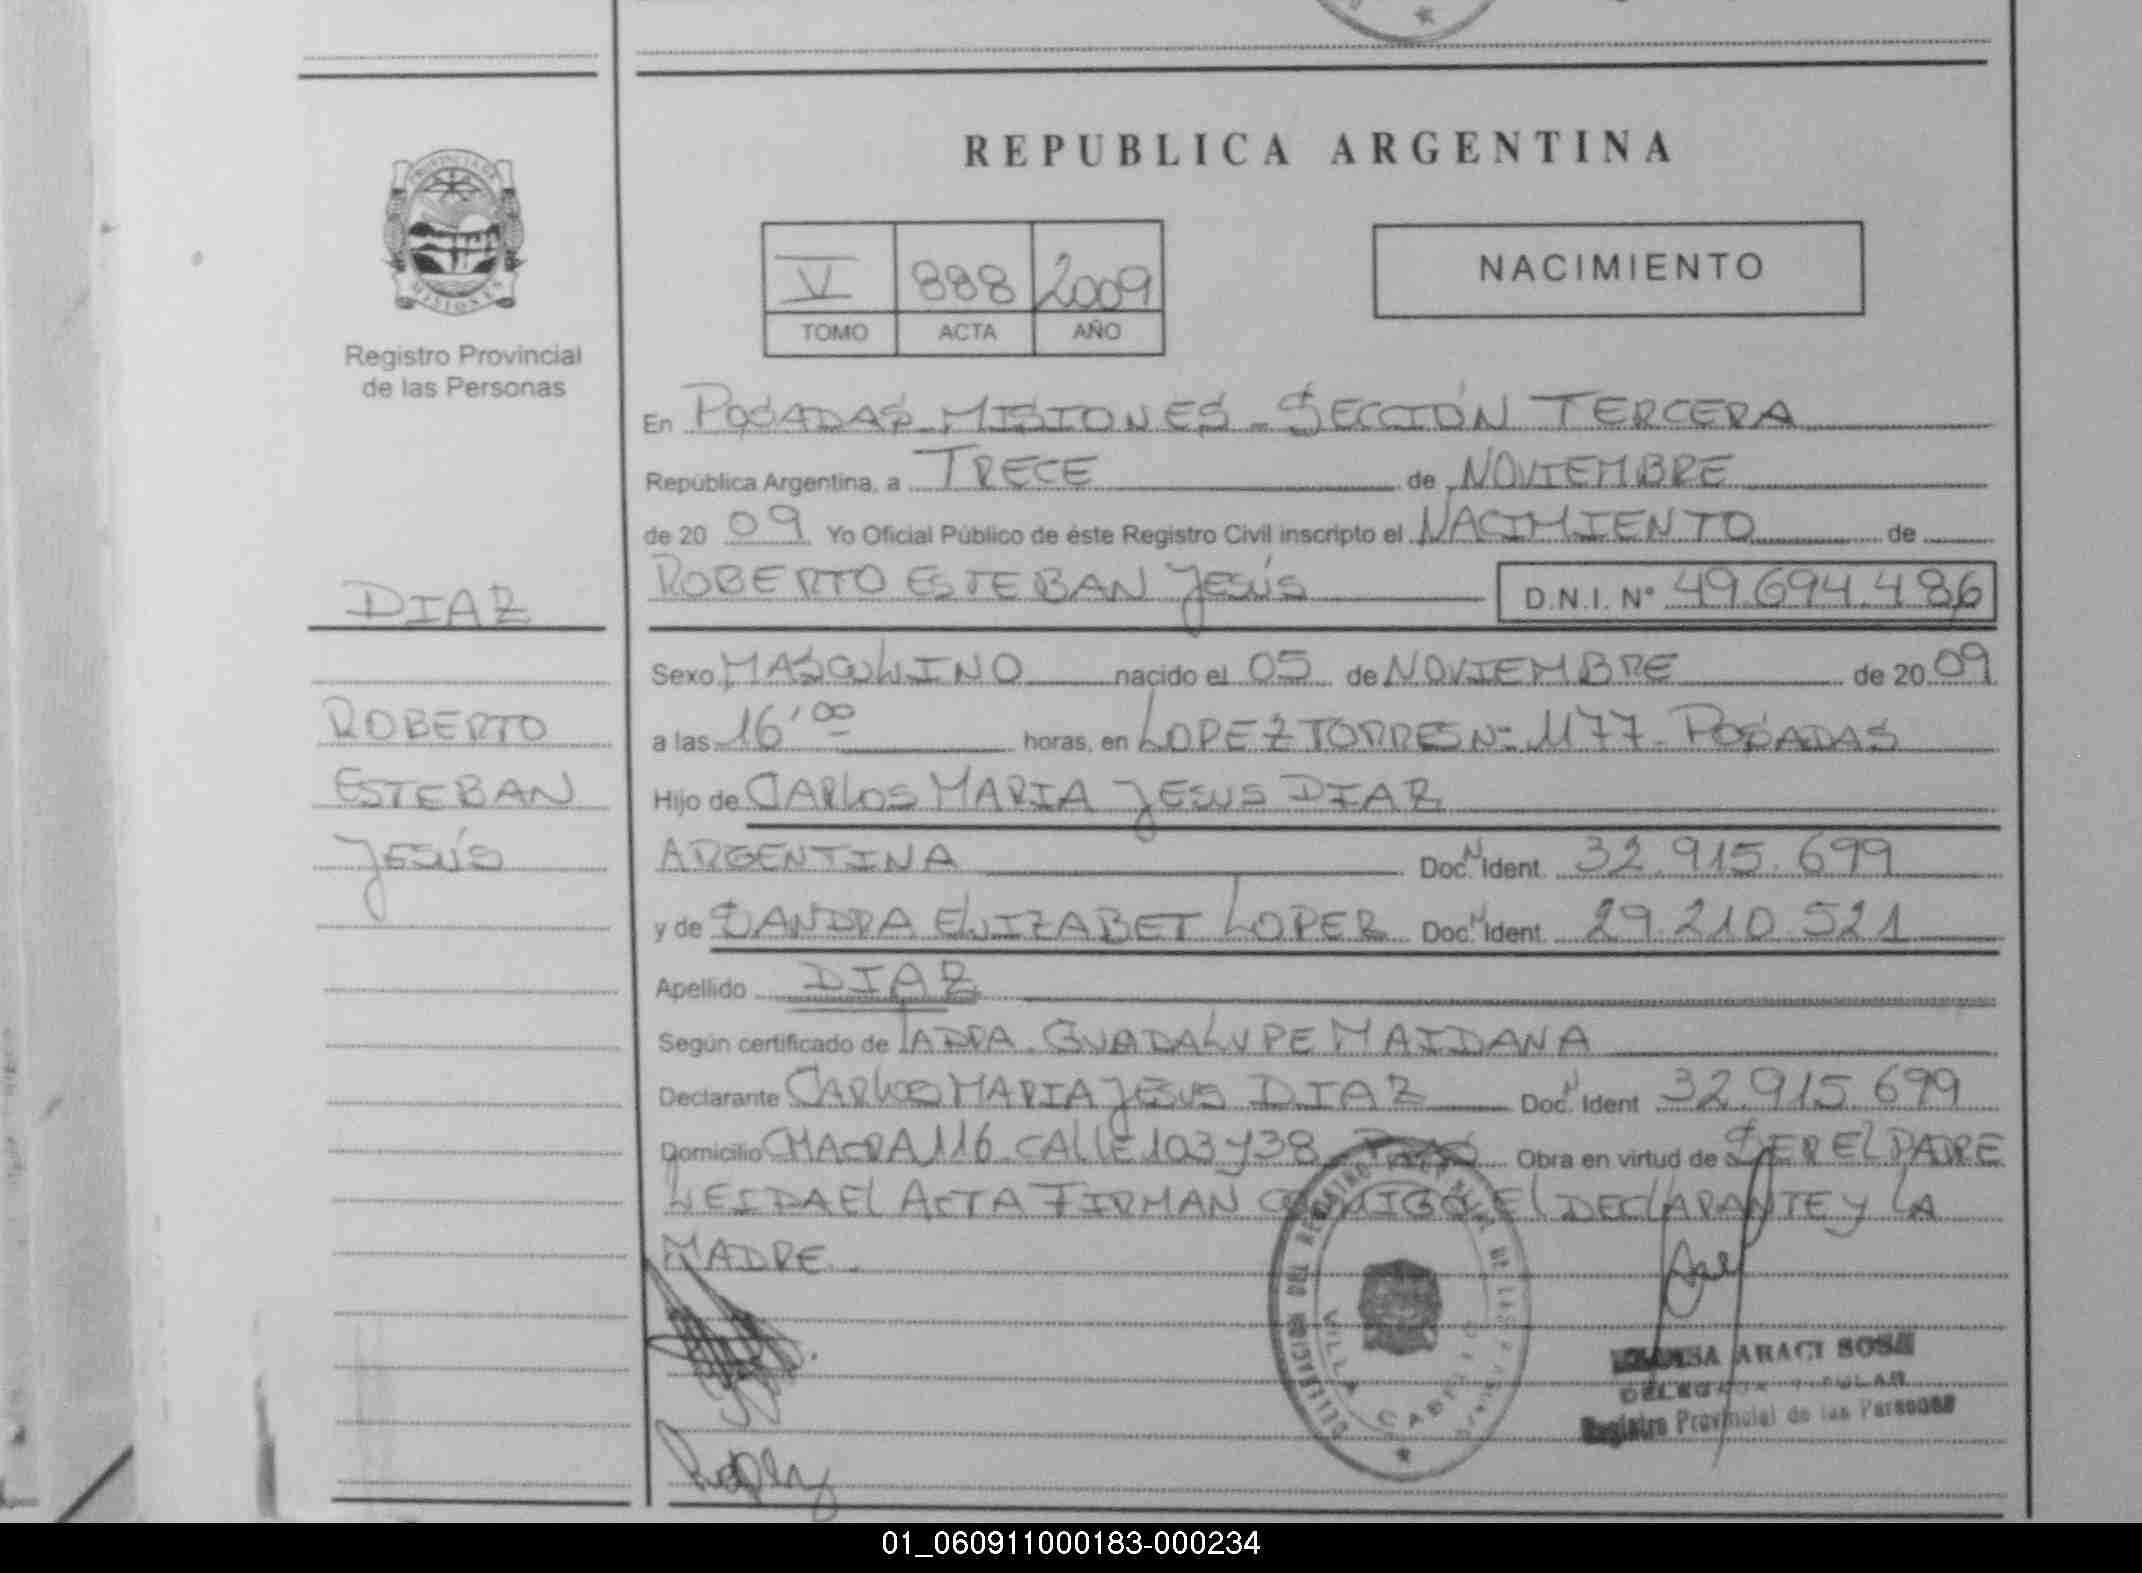 REPUBLICA ARGENTINA
PROVINCIA DE
MISIONES
Registro Provincial
de las Personas
V 888 2009
TOMO ACTA AÑO
NACIMIENTO
En POSADAS MISIONES - SECCIÓN TERCERA
República Argentina, a TRECE de NOVIEMBRE
de 20 09 Yo Oficial Público de éste Registro Civil inscripto el NACIMIENTO de
ROBERTO ESTEBAN JESÚS D.N.I. N° 49.694.486
DIAZ
ROBERTO
ESTEBAN
JESÚS
Sexo MASCULINO nacido el 05 de NOVIEMBRE de 20 09
a las 16,00 horas, en LOPEZ TORRES Nº 1177 - POSADAS
Hijo de CARLOS MARIA JESUS DIAZ
ARGENTINA Doc. N Ident. 32.915.699
y de SANDRA ELIZABET LOPEZ Doc. N Ident. 29.210.521
Apellido DIAZ
Según certificado de LA DRA. GUADALUPE MAIDANA
Declarante CARLOS MARIA JESUS DIAZ Doc. N Ident 32.915.699
Domicilio CHACRA 116 CALLE 103 Y 38 Obra en virtud de SER EL PADRE
LEIDA EL ACTA FIRMAN CONMIGO EL DECLARANTE Y LA
MADRE.
VILLA CABELLO
ARACI SOSA
Registro Provincial de las Personas
01_060911000183-000234